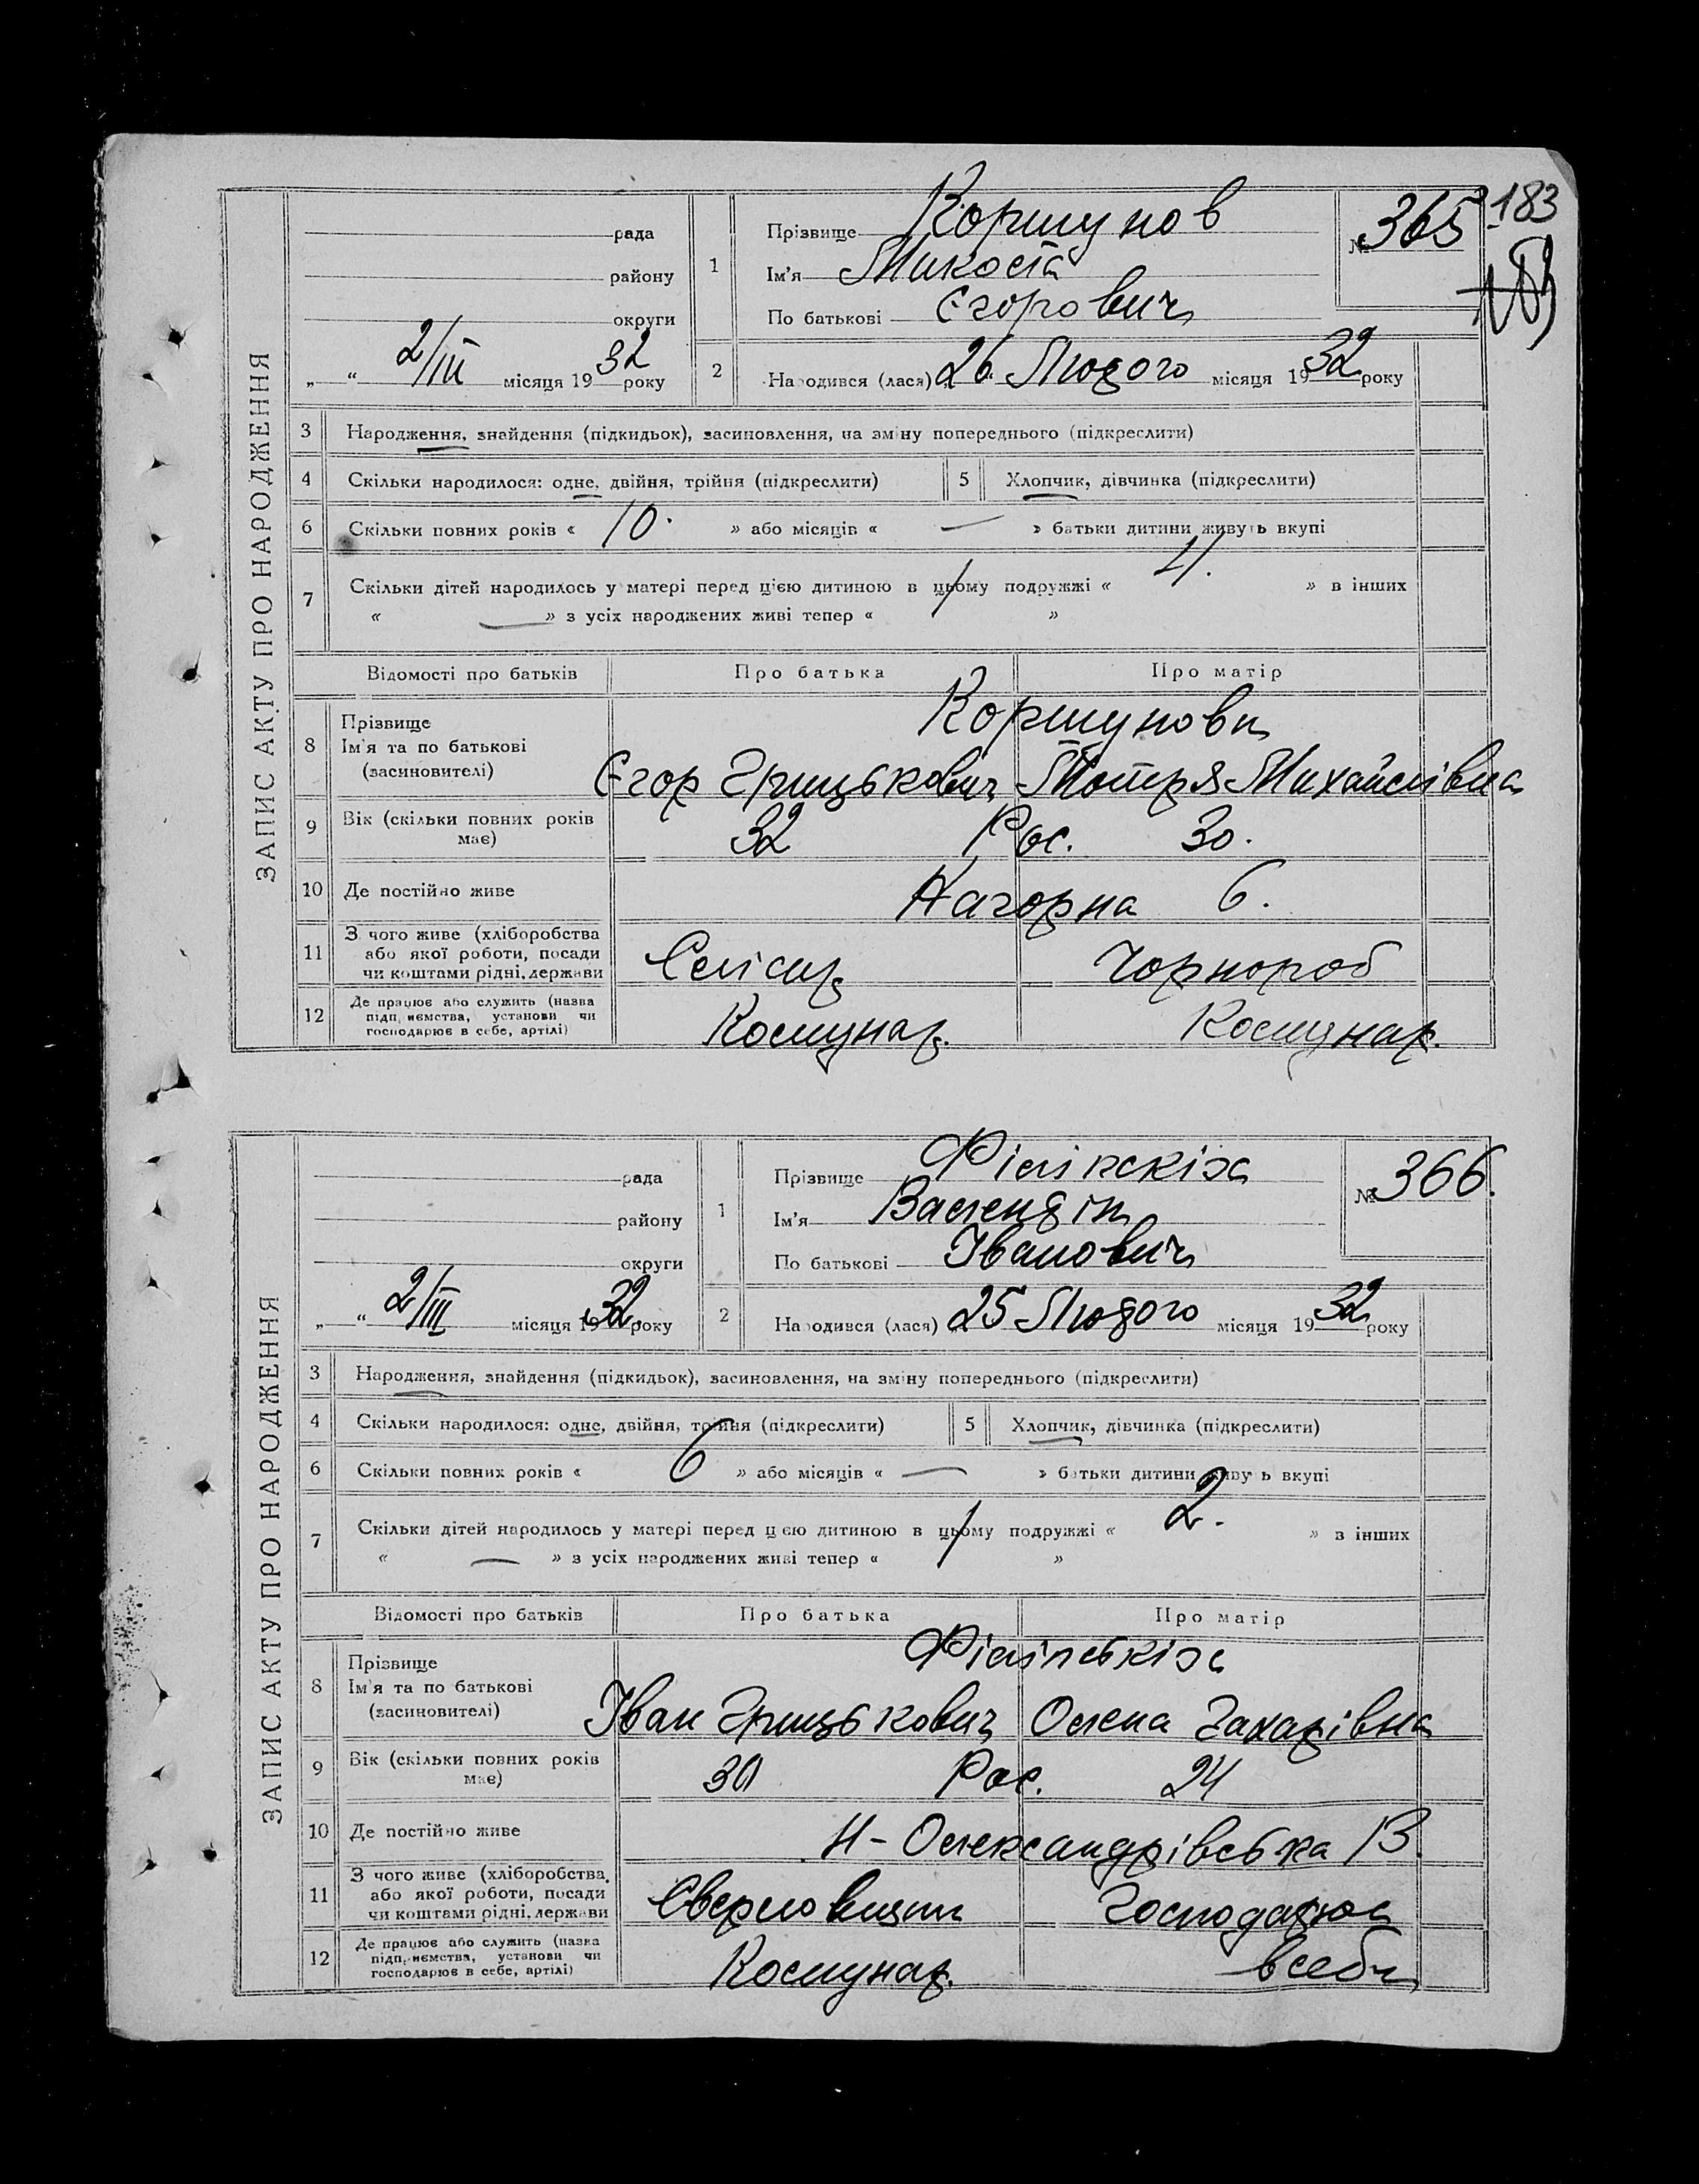 183
ЗАПИС АКТУ ПРО НАРОДЖЕННЯ
рада
району
округи
„ “ 2/III місяця 1932 року
1
Прізвище Коршунов
Ім'я Микола
По батькові Єгорович
№ 365
2 Народився (лася) „26“ Лютого місяця 1932 року
3 Народження, знайдення (підкидьок), засиновлення, на зміну попереднього (підкреслити)
4 Скільки народилося: одне, двійня, трійня (підкреслити)
5 Хлопчик, дівчинка (підкреслити)
6 Скільки повних років « 10. » або місяців « — » батьки дитини живуть вкупі
7 Скільки дітей народилось у матері перед цією дитиною в цьому подружжі « 4. » в інших
« — » з усіх народжених живі тепер « »
Відомості про батьків Про батька Про матір
8 Прізвище Коршунови
Ім'я та по батькові Єгор Грицькович Мотря Михайлівна
(засиновителі)
9 Вік (скільки повних років має) 32 Рос. 30.
10 Де постійно живе Нагорна 6.
11 З чого живе (хліборобства або якої роботи, посади чи коштами рідні, держави Слісар Чорнороб
12 Де працює або служить (назва підприємства, установи чи господарює в себе, артілі) Комунар. Комунар.
ЗАПИС АКТУ ПРО НАРОДЖЕННЯ
рада
району
округи
„ “ 2/III місяця 1932 року
1
Прізвище
Ім'я Валендін
По батькові Іванович
№ 366.
2 Народився (лася) „25 Лютого місяця 1932 року
3 Народження, знайдення (підкидьок), засиновлення, на зміну попереднього (підкреслити)
4 Скільки народилося: одне, двійня, трійня (підкреслити)
5 Хлопчик, дівчинка (підкреслити)
6 Скільки повних років « 6 » або місяців « — » батьки дитини живуть вкупі
7 Скільки дітей народилось у матері перед цією дитиною в цьому подружжі « 2. » в інших
« — » з усіх народжених живі тепер « »
Відомості про батьків Про батька Про матір
8 Прізвище
Ім'я та по батькові Іван Грицькович Олена Захарівна
(засиновителі)
9 Вік (скільки повних років має) 30 Рос. 24
10 Де постійно живе Н-Олександрівська 13
11 З чого живе (хліборобства, або якої роботи, посади чи коштами рідні, держави Сверловщик Господарює
12 Де працює або служить (назва підприємства, установи чи господарює в себе, артілі) Комунар. всебе